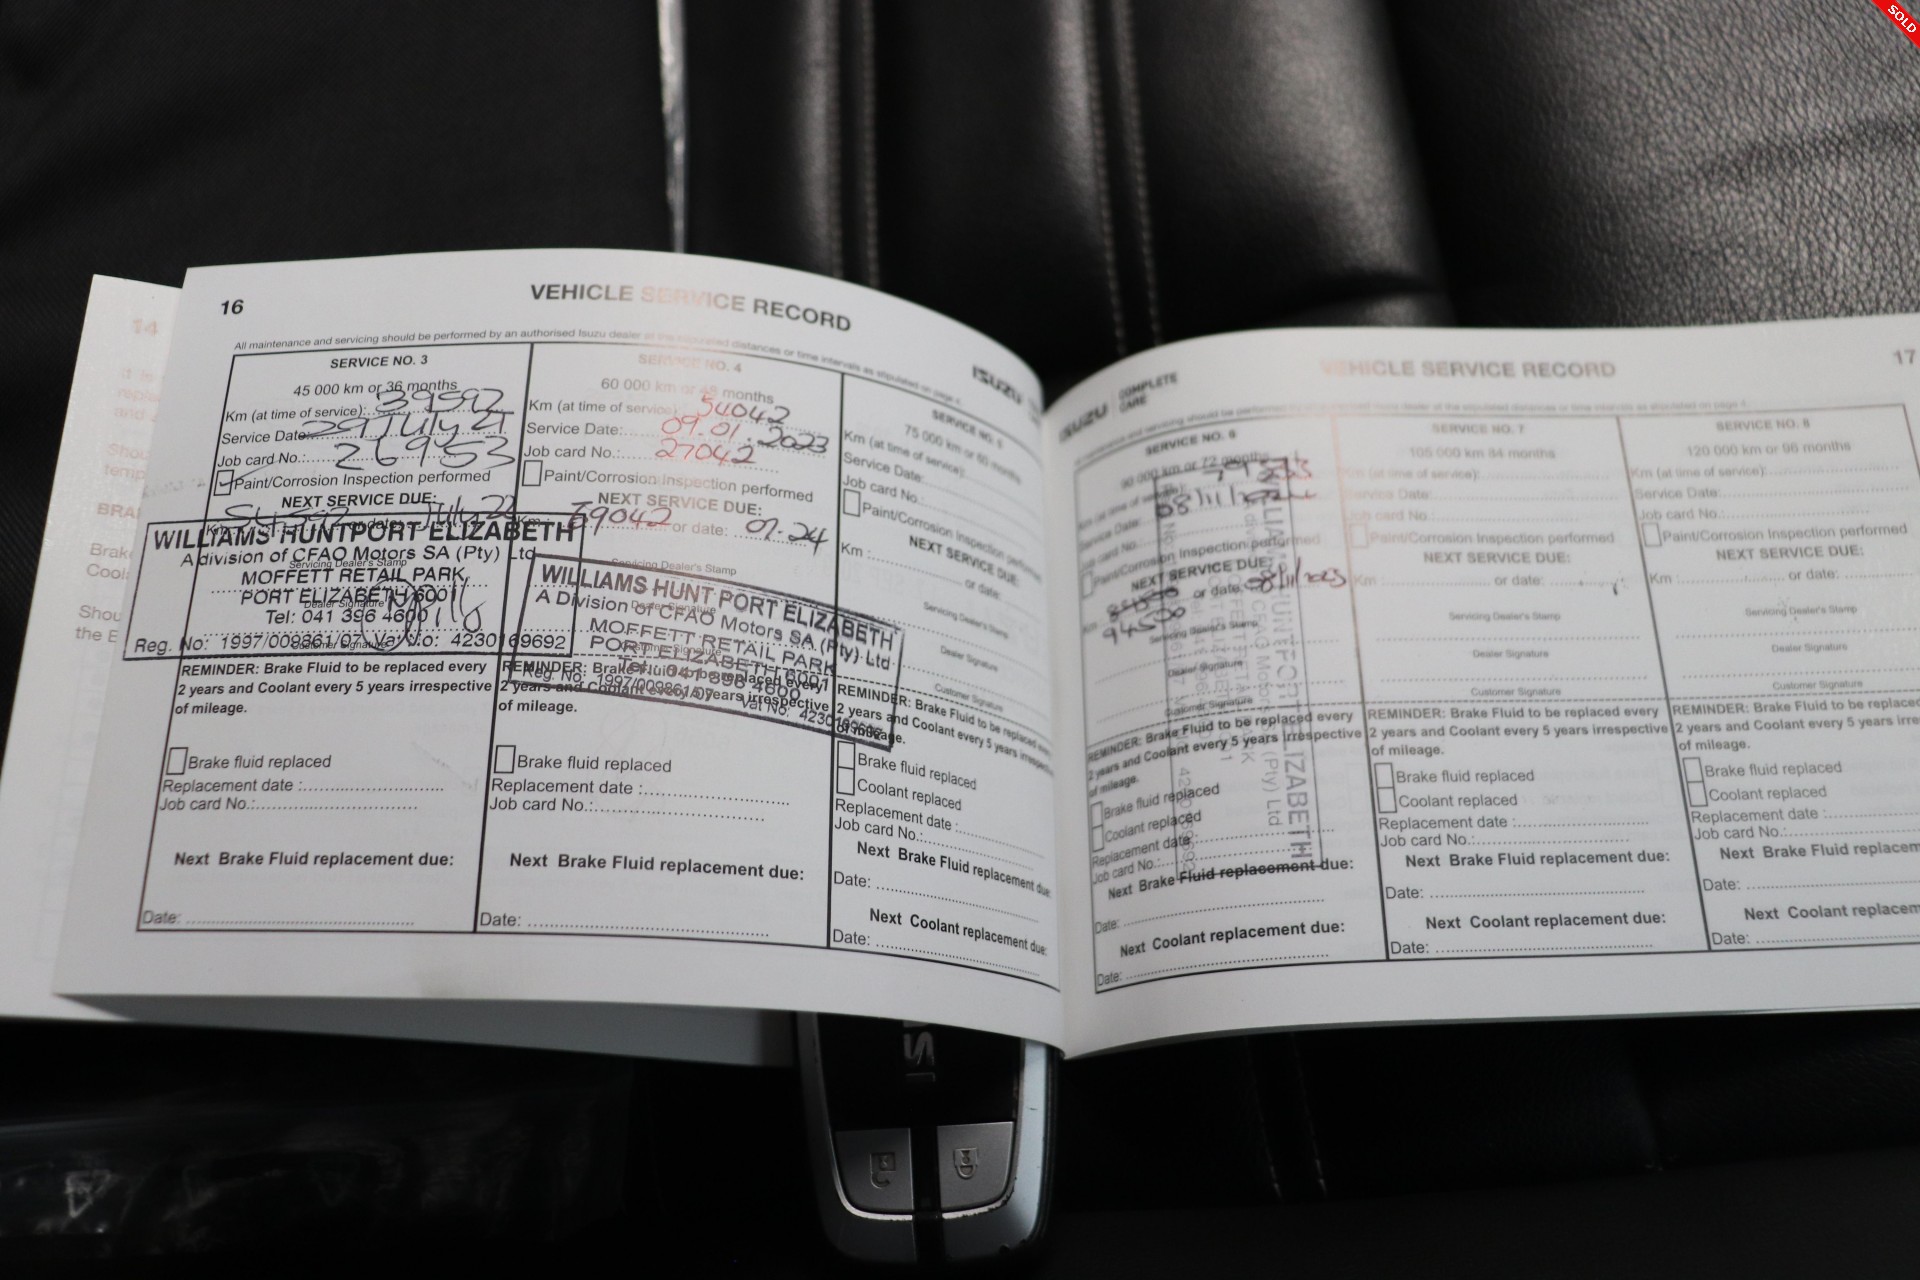 SOLD
14
16
VEHICLE SERVICE RECORD
All maintenance and servicing should be performed by an authorised Isuzu dealer at the stipulated distances or time intervals as stipulated on page 4
ISUZU
SERVICE NO. 3
45 000 km or 36 months
Km (at time of service): 39592
Service Date: 29 July 21
Job card No.: 26953
Paint/Corrosion Inspection performed
NEXT SERVICE DUE:
Km: 54592 or date: July 22
WILLIAMS HUNT PORT ELIZABETH
A division of CFAO Motors SA (Pty) Ltd
Servicing Dealer's Stamp
MOFFETT RETAIL PARK
PORT ELIZABETH 6001
Dealer Signature
Tel: 041 396 4600
Reg. No: 1997/009861/07 Vat No: 4230169692
Customer Signature
REMINDER: Brake Fluid to be replaced every
2 years and Coolant every 5 years irrespective
of mileage.
Brake fluid replaced
Replacement date :
Job card No.:
Next Brake Fluid replacement due:
Date:
SERVICE NO. 4
60 000 km or 48 months
Km (at time of service): 54042
Service Date: 09.01.2023
Job card No.: 27042
Paint/Corrosion Inspection performed
NEXT SERVICE DUE:
Km: 69042 or date: 01.24
Servicing Dealer's Stamp
WILLIAMS HUNT PORT ELIZABETH
A Division of CFAO Motors SA (Pty) Ltd
Dealer Signature
MOFFETT RETAIL PARK
PORT ELIZABETH 6001
Customer Signature
Tel: 041 396 4600
Reg. No: 1997/009861/07 Vat No: 4230169692
REMINDER: Brake Fluid to be replaced every
2 years and Coolant every 5 years irrespective
of mileage.
Brake fluid replaced
Replacement date :
Job card No.:
Next Brake Fluid replacement due:
Date:
SERVICE NO. 5
75 000 km or 60 months
Km (at time of service):
Service Date:
Job card No.:
Paint/Corrosion Inspection performed
NEXT SERVICE DUE:
Km : or date:
Servicing Dealer's Stamp
Dealer Signature
Customer Signature
REMINDER: Brake Fluid to be replaced every
2 years and Coolant every 5 years irrespective
of mileage.
Brake fluid replaced
Coolant replaced
Replacement date :
Job card No.:
Next Brake Fluid replacement due:
Date:
Next Coolant replacement due:
Date:
17
ISUZU COMPLETE CARE
VEHICLE SERVICE RECORD
SERVICE NO. 6
90 000 km or 72 months
Km (at time of service):
Service Date: 08/11/
Job card No.:
Paint/Corrosion Inspection performed
NEXT SERVICE DUE:
or date: 08/11/2023
94500
Servicing Dealer's Stamp
Dealer Signature
Customer Signature
REMINDER: Brake Fluid to be replaced every
2 years and Coolant every 5 years irrespective
of mileage.
Brake fluid replaced
Coolant replaced
Replacement date
Job card No.:
Next Brake Fluid replacement due:
Date:
Next Coolant replacement due:
Date:
SERVICE NO. 7
105 000 km 84 months
Km (at time of service):
Service Date:
Job card No.:
Paint/Corrosion Inspection performed
NEXT SERVICE DUE:
Km : or date:
Servicing Dealer's Stamp
Dealer Signature
Customer Signature
REMINDER: Brake Fluid to be replaced every
2 years and Coolant every 5 years irrespective
of mileage.
Brake fluid replaced
Coolant replaced
Replacement date :
Job card No.:
Next Brake Fluid replacement due:
Date:
Next Coolant replacement due:
Date:
SERVICE NO. 8
120 000 km or 96 months
Km (at time of service):
Service Date:
Job card No.:
Paint/Corrosion Inspection performed
NEXT SERVICE DUE:
Km : or date:
Servicing Dealer's Stamp
Dealer Signature
Customer Signature
REMINDER: Brake Fluid to be replaced
2 years and Coolant every 5 years
of mileage.
Brake fluid replaced
Coolant replaced
Replacement date :
Job card No.:
Next Brake Fluid
Date:
Next Coolant
Date: